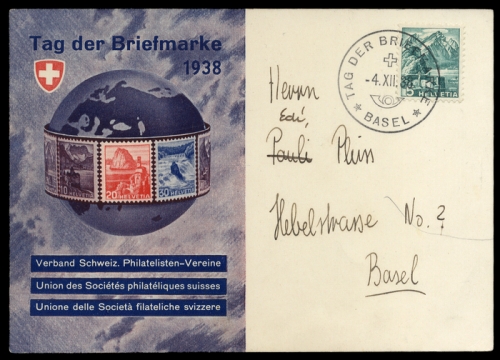 Tag der Briefmarke
1938
10 HELVETIA
20 HELVETIA
30 HELVETIA
Verband Schweiz. Philatelisten-Vereine
Union des Sociétés philatéliques suisses
Unione delle Società filateliche svizzere
TAG DER BRIEFMARKE
-4.XII.38
BASEL
5 HELVETIA
Herrn
Edi,
Pauli Plüss
Hebelstrasse No. ?
Basel